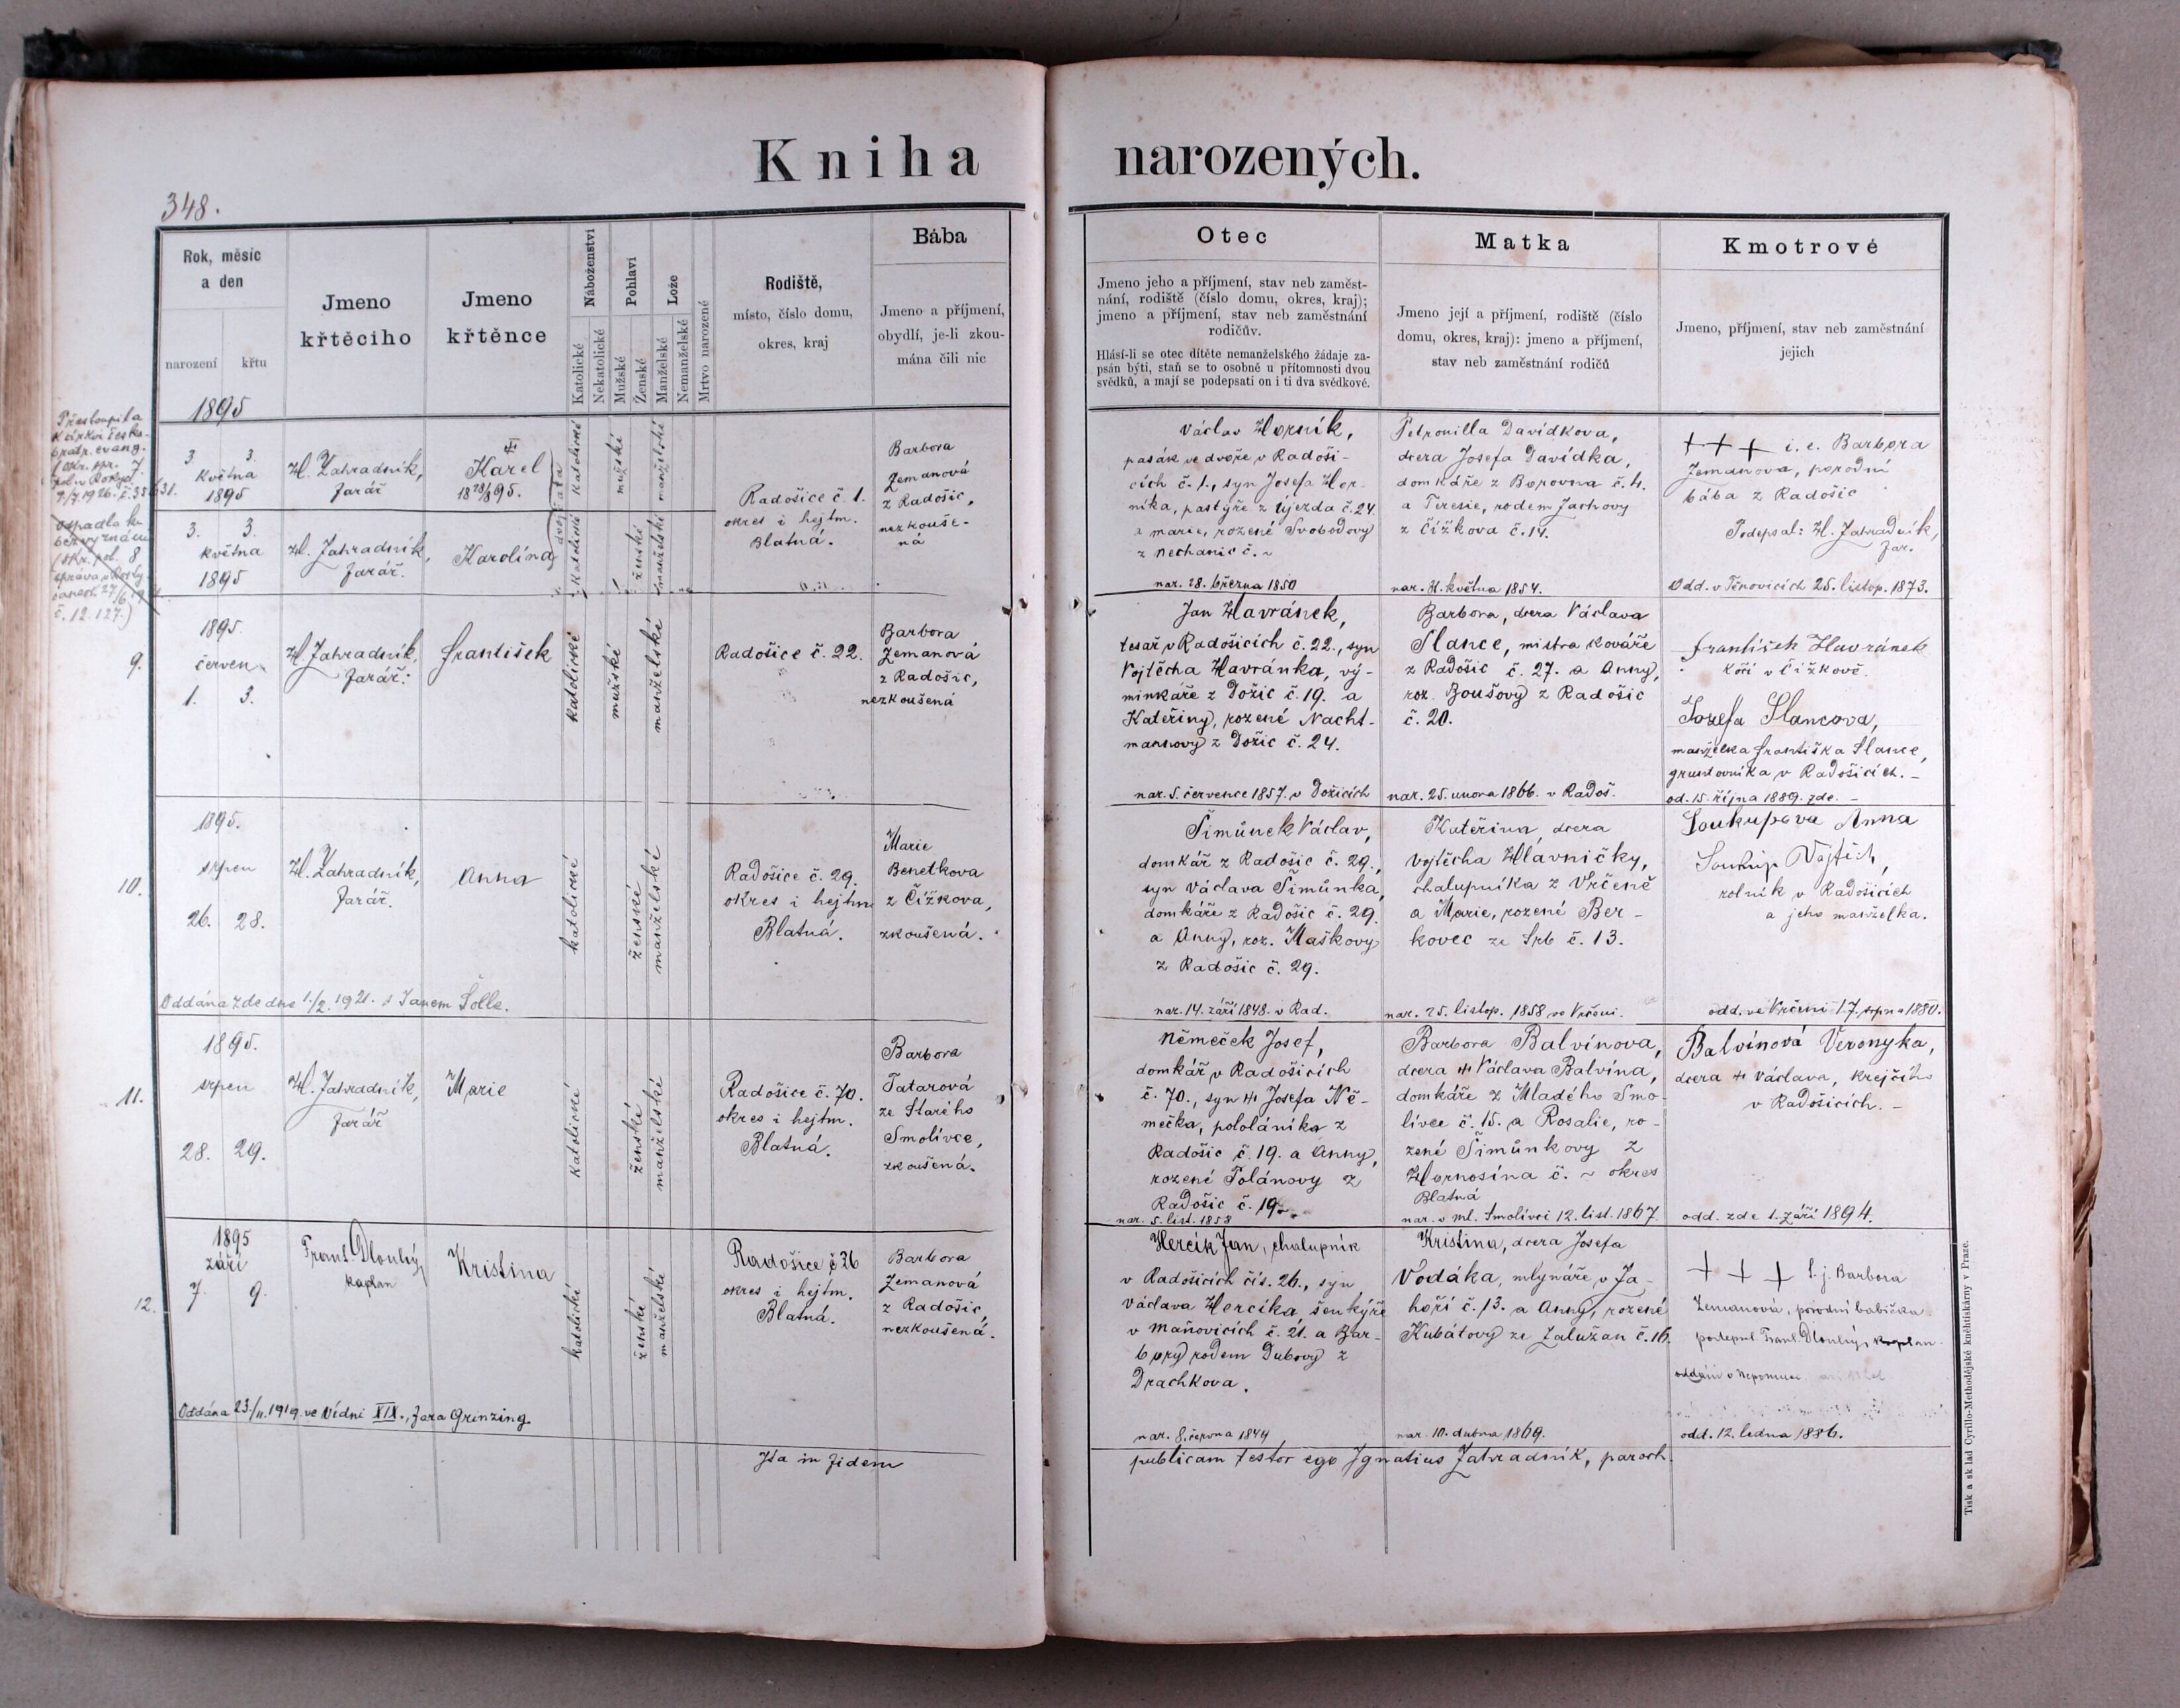 Kniha narozených.
348.
Rok, měsíc
a den
narození
křtu
Jmeno
křtěcího
Jmeno
křtěnce
Náboženství
Katolické
Nekatolické
Pohlaví
Mužské
Ženské
Lože
Manželské
Nemanželské
Mrtvo narozené
Rodiště,
místo, číslo domu,
okres, kraj
Bába
Jmeno a příjmení,
obydlí, je-li zkou-
mána čili nic
Otec
Jmeno jeho a příjmení, stav neb zaměst-
nání, rodiště (číslo domu, okres, kraj);
jmeno a příjmení, stav neb zaměstnání
rodičův.
Hlásí-li se otec dítěte nemanželského žádaje za-
psán býti, staň se to osobně u přítomnosti dvou
svědků, a mají se podepsati on i ti dva svědkové.
Matka
Jmeno její a příjmení, rodiště (číslo
domu, okres, kraj): jmeno a příjmení,
stav neb zaměstnání rodičů
Kmotrové
Jmeno, příjmení, stav neb zaměstnání
jejich
1895
Přestoupila
k církvi česko-
bratr. evang.
3. 3.
května
1895
H. Zahradník,
farář
Karel
18 28/8 95.
dvojčata
katolické
mužské
manželské
Radošice č. 1.
okres i hejtm.
Blatná.
Barbora
Zemanová
z Radošic,
nezkouše-
ná
Václav Horník,
pasák ve dvoře v Radoši-
cích č. 1., syn Josefa Hor-
níka, pastýře z Újezda č. 24.
a marie, rozené Svobodovy
z Nechanic č. ~
nar. 28. března 1850
Petronilla Davídkova,
dcera Josefa Davídka,
domkáře z Borovna č. 4.
a Teresie, rodem Jachovy
z Čížkova č. 14.
nar. 31. května 1854.
+++ i. e. Barbora
Zemanova, porodní
bába z Radošic
Podepsal: H. Zahradník,
far.
Odd. v Těnovicích 25. listop. 1873.
3. 3.
května
1895
H. Zahradník,
farář.
Karolína
katolické
ženské
manželské
9.
1895.
červen
1. 3.
H. Zahradník,
farář.
František
katolické
mužské
manželské
Radošice č. 22.
Barbora
Zemanová
z Radošic,
nezkoušená
Jan Havránek,
tesař v Radošicích č. 22., syn
Vojtěcha Havránka, vý-
minkáře z Dožic č. 19. a
Kateřiny, rozené Nacht-
mannovy z Dožic č. 24.
nar. 5. července 1857. v Dožicích
Barbora, dcera Václava
Slance, mistra kováře
z Radošic č. 27. a Anny,
roz. Boušovy z Radošic
č. 20.
nar. 25. unora 1866. v Radoš.
František Havránek
kočí v Čížkově.
Josefa Slancova,
manželka Františka Slance,
gruntovníka v Radošicích. –
od. 15. října 1889. zde. –
10.
1895.
srpen
26. 28.
H. Zahradník,
farář.
Anna
katolické
ženské
manželské
Radošice č. 29.
okres i hejtm.
Blatná.
Marie
Benetkova
z Čížkova,
zkoušená.
Šimůnek Václav,
domkář z Radošic č. 29.,
syn Václava Šimůnka,
domkáře z Radošic č. 29.
a Anny, roz. Maškovy
z Radošic č. 29.
nar. 14. září 1848. v Rad.
Kateřina, dcera
Vojtěcha Hlávničky,
chalupníka z Vrčeně
a Marie, rozené Ber-
kovec ze Srb č. 13.
nar. 25. listop. 1858 ve Vrčeni.
Soukupova Anna
Soukup Vojtěch,
rolník v Radošicích
a jeho manželka.
odd. ve Vrčeni 17. srpna 1880.
Oddána zde dne 1./2. 1921. s Janem Šolle.
11.
1895.
srpen
28. 29.
H. Zahradník,
farář
Marie
katolické
ženské
manželské
Radošice č. 70.
okres i hejtm.
Blatná.
Barbora
Tatarová
ze Starého
Smolivce,
zkoušená.
Němeček Josef,
domkář v Radošicích
č. 70., syn + Josefa Ně-
mečka, pololáníka z
Radošic č. 19. a Anny,
rozené Polánovy z
Radošic č. 19.
nar. 5. list. 1858
Barbora Balvínova,
dcera + Václava Balvína,
domkáře z Mladého Smo-
livce č. 15. a Rosalie, ro-
zené Šimůnkovy z
Hornosína č. ~ okres
Blatná
nar. v ml. Smolivci 12. list. 1867.
Balvínová Veronyka,
dcera + Václava, krejčího
v Radošicích. –
odd. zde 1. září 1894.
12.
1895
září
7. 9.
Frant. Dlouhý,
kaplan
Kristina
katolické
ženské
manželské
Radošice č. 26
okres i hejtm.
Blatná.
Barbora
Zemanová
z Radošic,
nezkoušená.
Hercík Jan, chalupník
v Radošicích čís. 26., syn
Václava Hercíka, šenkýře
v Maňovicích č. 21. a Bar-
bory rodem Dubovy z
Drachkova.
nar. 8. června 1844
Kristina, dcera Josefa
Vodáka, mlynáře v Ja-
hoří č. 13. a Anny, rozené
Kubátovy ze Zalužan č. 16.
nar. 10. dubna 1869.
+++ t. j. Barbora
Zemanová, porodní babička
podepsal Frant. Dlouhý, kaplan
oddáni v Nepomuce
odd. 12. ledna 1886.
Oddána 23./11. 1919. ve Vídni XIX., fara Grinzing.
Ita in fidem publicam testor ego Ignatius Zahradník, paroch.
Tisk a sklad Cyrillo-Methodějské knihtiskárny v Praze.